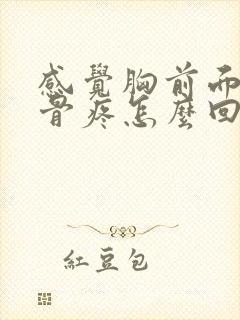 感覺胸前而
骨疼怎麼回
紅豆包